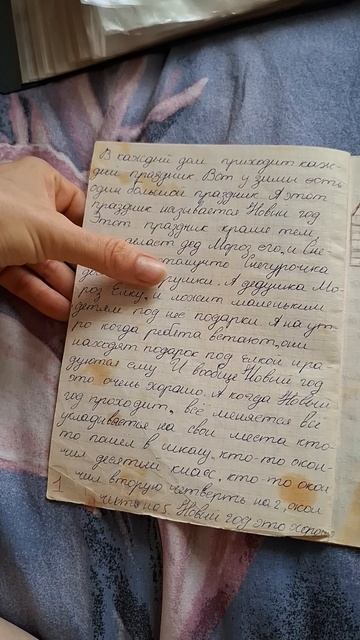 В каждий дом приходит каж-
дий праздник. Вот у зими есть
один большой праздник. А этот
праздник називается Новий год
Этот праздник краше тем,
делает дед Мороз его, и Сне
Снегурочка
игрушки. А дедушка Мо-
роз Ёлку, и может маленьким
детям под неё подарки. А на ут-
ро когда ребята встают, они
находят подарок под ёлкой и ра
дуются ему. И вообще Новий год
это очень хорошо. А когда Новий
год проходит, всё меняется все
укладивается на свои места кто-
то пошел в школу, кто-то окон-
чил десятий класс, кто-то окон
чил вторую четверть на 2, окон
чить на 5 Новий год это хорошо
1